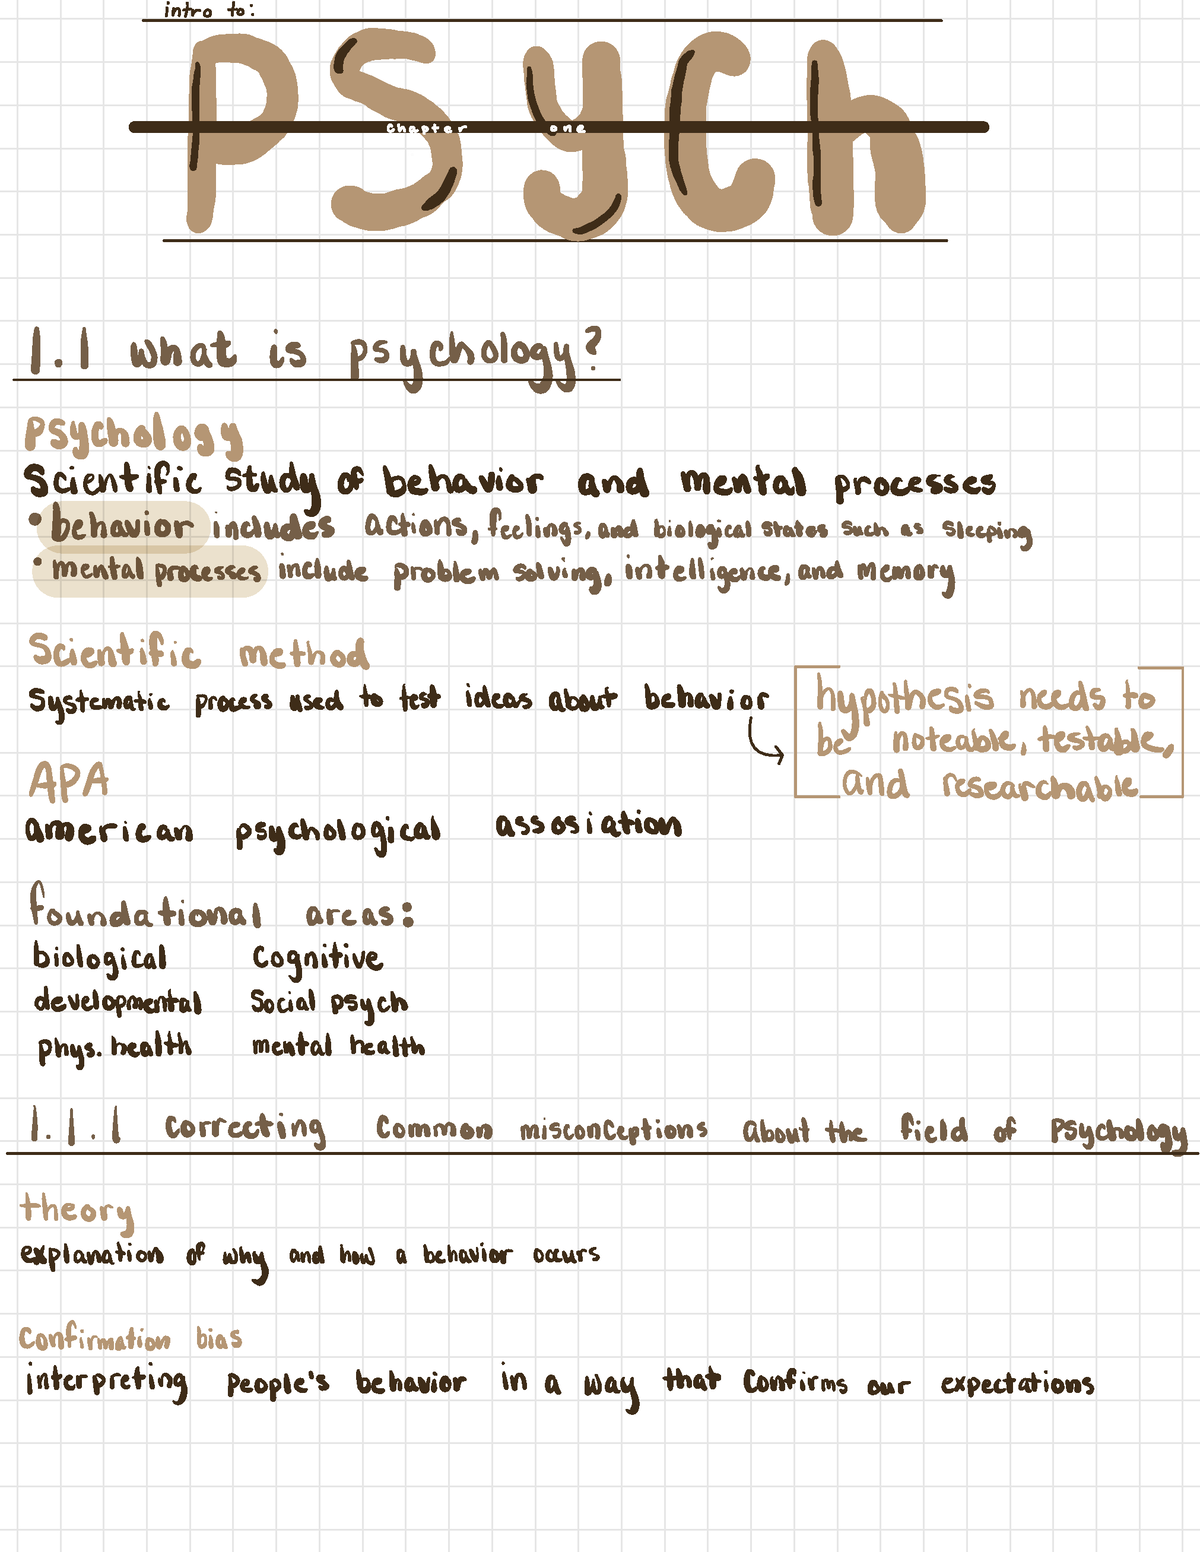 intro to:
PSYCh
chapter one
1.1 what is psychology?
psychology
Scientific study of behavior and mental processes
• behavior includes actions, feelings, and biological states such as sleeping
• mental processes include problem solving, intelligence, and memory
Scientific method
Systematic process used to test ideas about behavior
hypothesis needs to
be noteable, testable,
and researchable
APA
american psychological assosiation
foundational areas:
biological Cognitive
developmental Social psych
phys. health mental health
1.1.1 correcting common misconceptions about the field of Psychology
theory
explanation of why and how a behavior occurs
Confirmation bias
interpreting people's behavior in a way that confirms our expectations